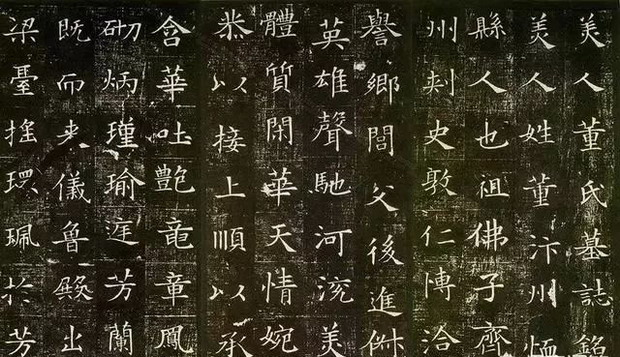 美人董氏墓誌銘
美人姓董汴州恤
縣人也祖佛子齊
州刺史敦仁博洽
譽鄉閭父後進俶
英雄聲馳河渷美
體質閑華天情婉
恭以接上順以承
含華吐艷竜章鳳
砌炳瑾瑜庭芳蘭
既而来儀魯殿出
梁臺搖環珮於芳